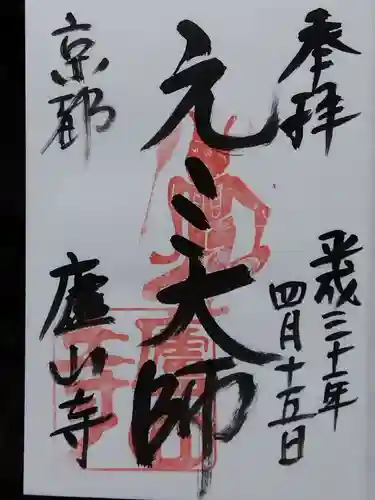 奉拝
平成三十年
四月十五日
元三大師
京都
廬山寺
廬山寺